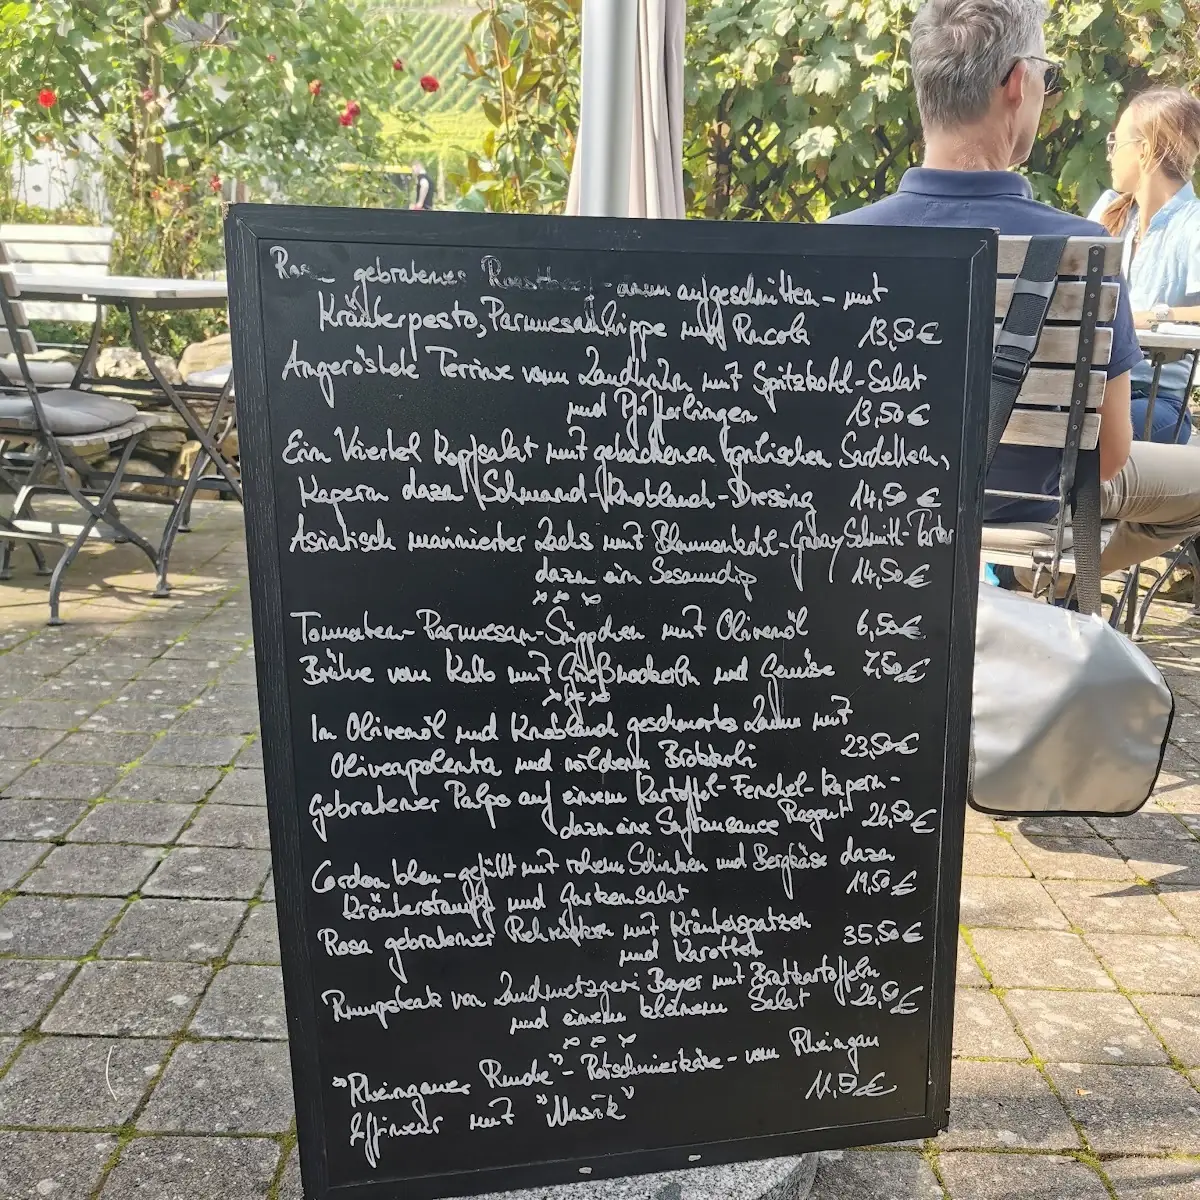 Rosa gebratenes Roastbeef - dünn aufgeschnitten - mit
Kräuterpesto, Parmesanhippe und Rucola 13,50€
Angeröstete Terrine vom Landhuhn mit Spitzkohl-Salat
und Pfifferlingen 13,50€
Ein Viertel Kopfsalat mit gebackenen Sardellen,
Kapern dazu Schmand-Knoblauch-Dressing 14,50€
Asiatisch marinierter Lachs mit Blumenkohl-
dazu ein Sesamdip 14,50€
x x x
Tomaten-Parmesan-Süppchen mit Olivenöl 6,50€
Brühe vom Kalb mit Grießnockerln und Gemüse 7,50€
x x x
In Olivenöl und Knoblauch geschmortes Lamm mit
Olivenpolenta und wildem Brokkoli 23,50€
Gebratener Pulpo auf einem Kartoffel-Fenchel-Kapern-
dazu eine Safransauce Ragout 26,50€
Cordon bleu - gefüllt mit rohem Schinken und Bergkäse dazu
Kräuterstampf und Gurkensalat 19,50€
Rosa gebratener Rehrücken mit Kräuterspatzen
und Karotten 35,50€
Rumpsteak von Landmetzgerei Beyer mit Bratkartoffeln
und einem kleinem Salat 26,50€
x x x
"Rheingauer Runde" - Rotschmierkäse - vom Rheingau
Affineur mit "Musik" 11,50€